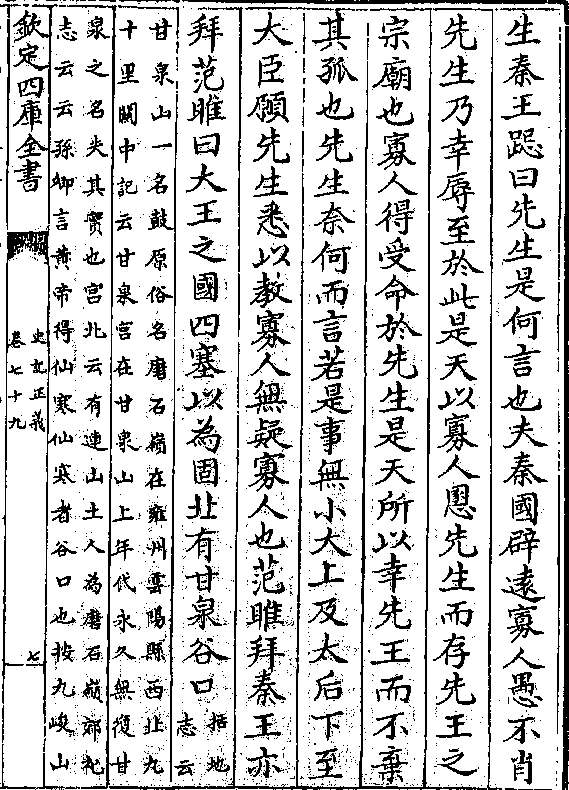 生秦王跽曰先生是何言也夫秦國辟遠寡人愚不肖
先生乃幸辱至於此是天以寡人慁先生而存先王之
宗廟也寡人得受命於先生是天所以幸先王而不棄
其孤也先生奈何而言若是事無小大上及太后下至
大臣願先生悉以教寡人無疑寡人也范雎拜秦王亦
拜范雎曰大王之國四塞以為固北有甘泉谷口
括地
志云
甘泉山一名鼓原俗名磨石嶺在雍州雲陽縣西北九
十里關中記云甘泉宮在甘泉山上年代永久無復甘
泉之名失其實也宮北云有連山土人為磨石嶺郊祀
志云云孫卿言黃帝得仙寒仙寒者谷口也按九峻山
欽定四庫全書
史記正義
卷七十九
七